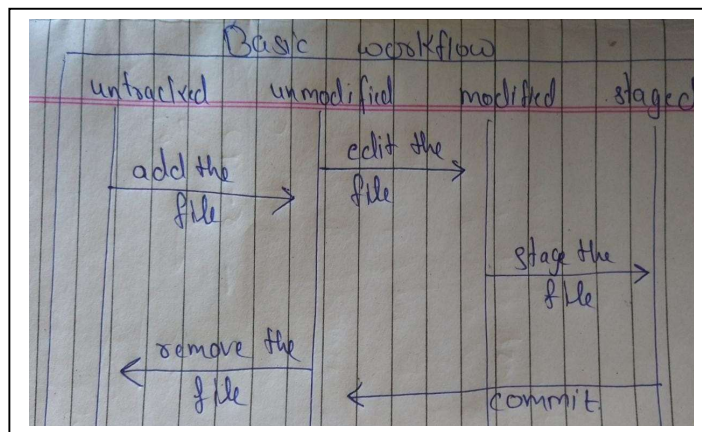 Basic workflow
untracked unmodified modified staged
add the
file
edit the
file
stage the
file
remove the
file
commit.